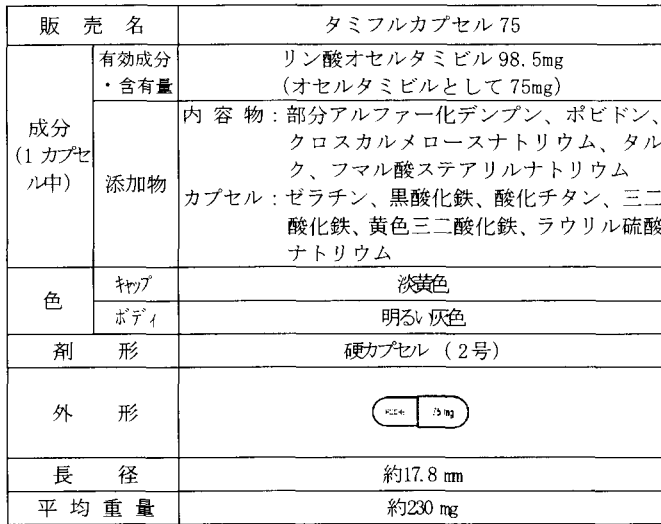 販売名 タミフルカプセル75
成分
(1カプセ
ル中)
有効成分
・含有量
リン酸オセルタミビル 98.5mg
(オセルタミビルとして 75mg)
添加物
内容物：部分アルファー化デンプン、ポビドン、
クロスカルメロースナトリウム、タル
ク、フマル酸ステアリルナトリウム
カプセル：ゼラチン、黒酸化鉄、酸化チタン、三二
酸化鉄、黄色三二酸化鉄、ラウリル硫酸
ナトリウム
色
キャップ 淡黄色
ボディ 明るい灰色
剤形 硬カプセル (2号)
外形
75 mg
長径 約17.8 mm
平均重量 約230 mg